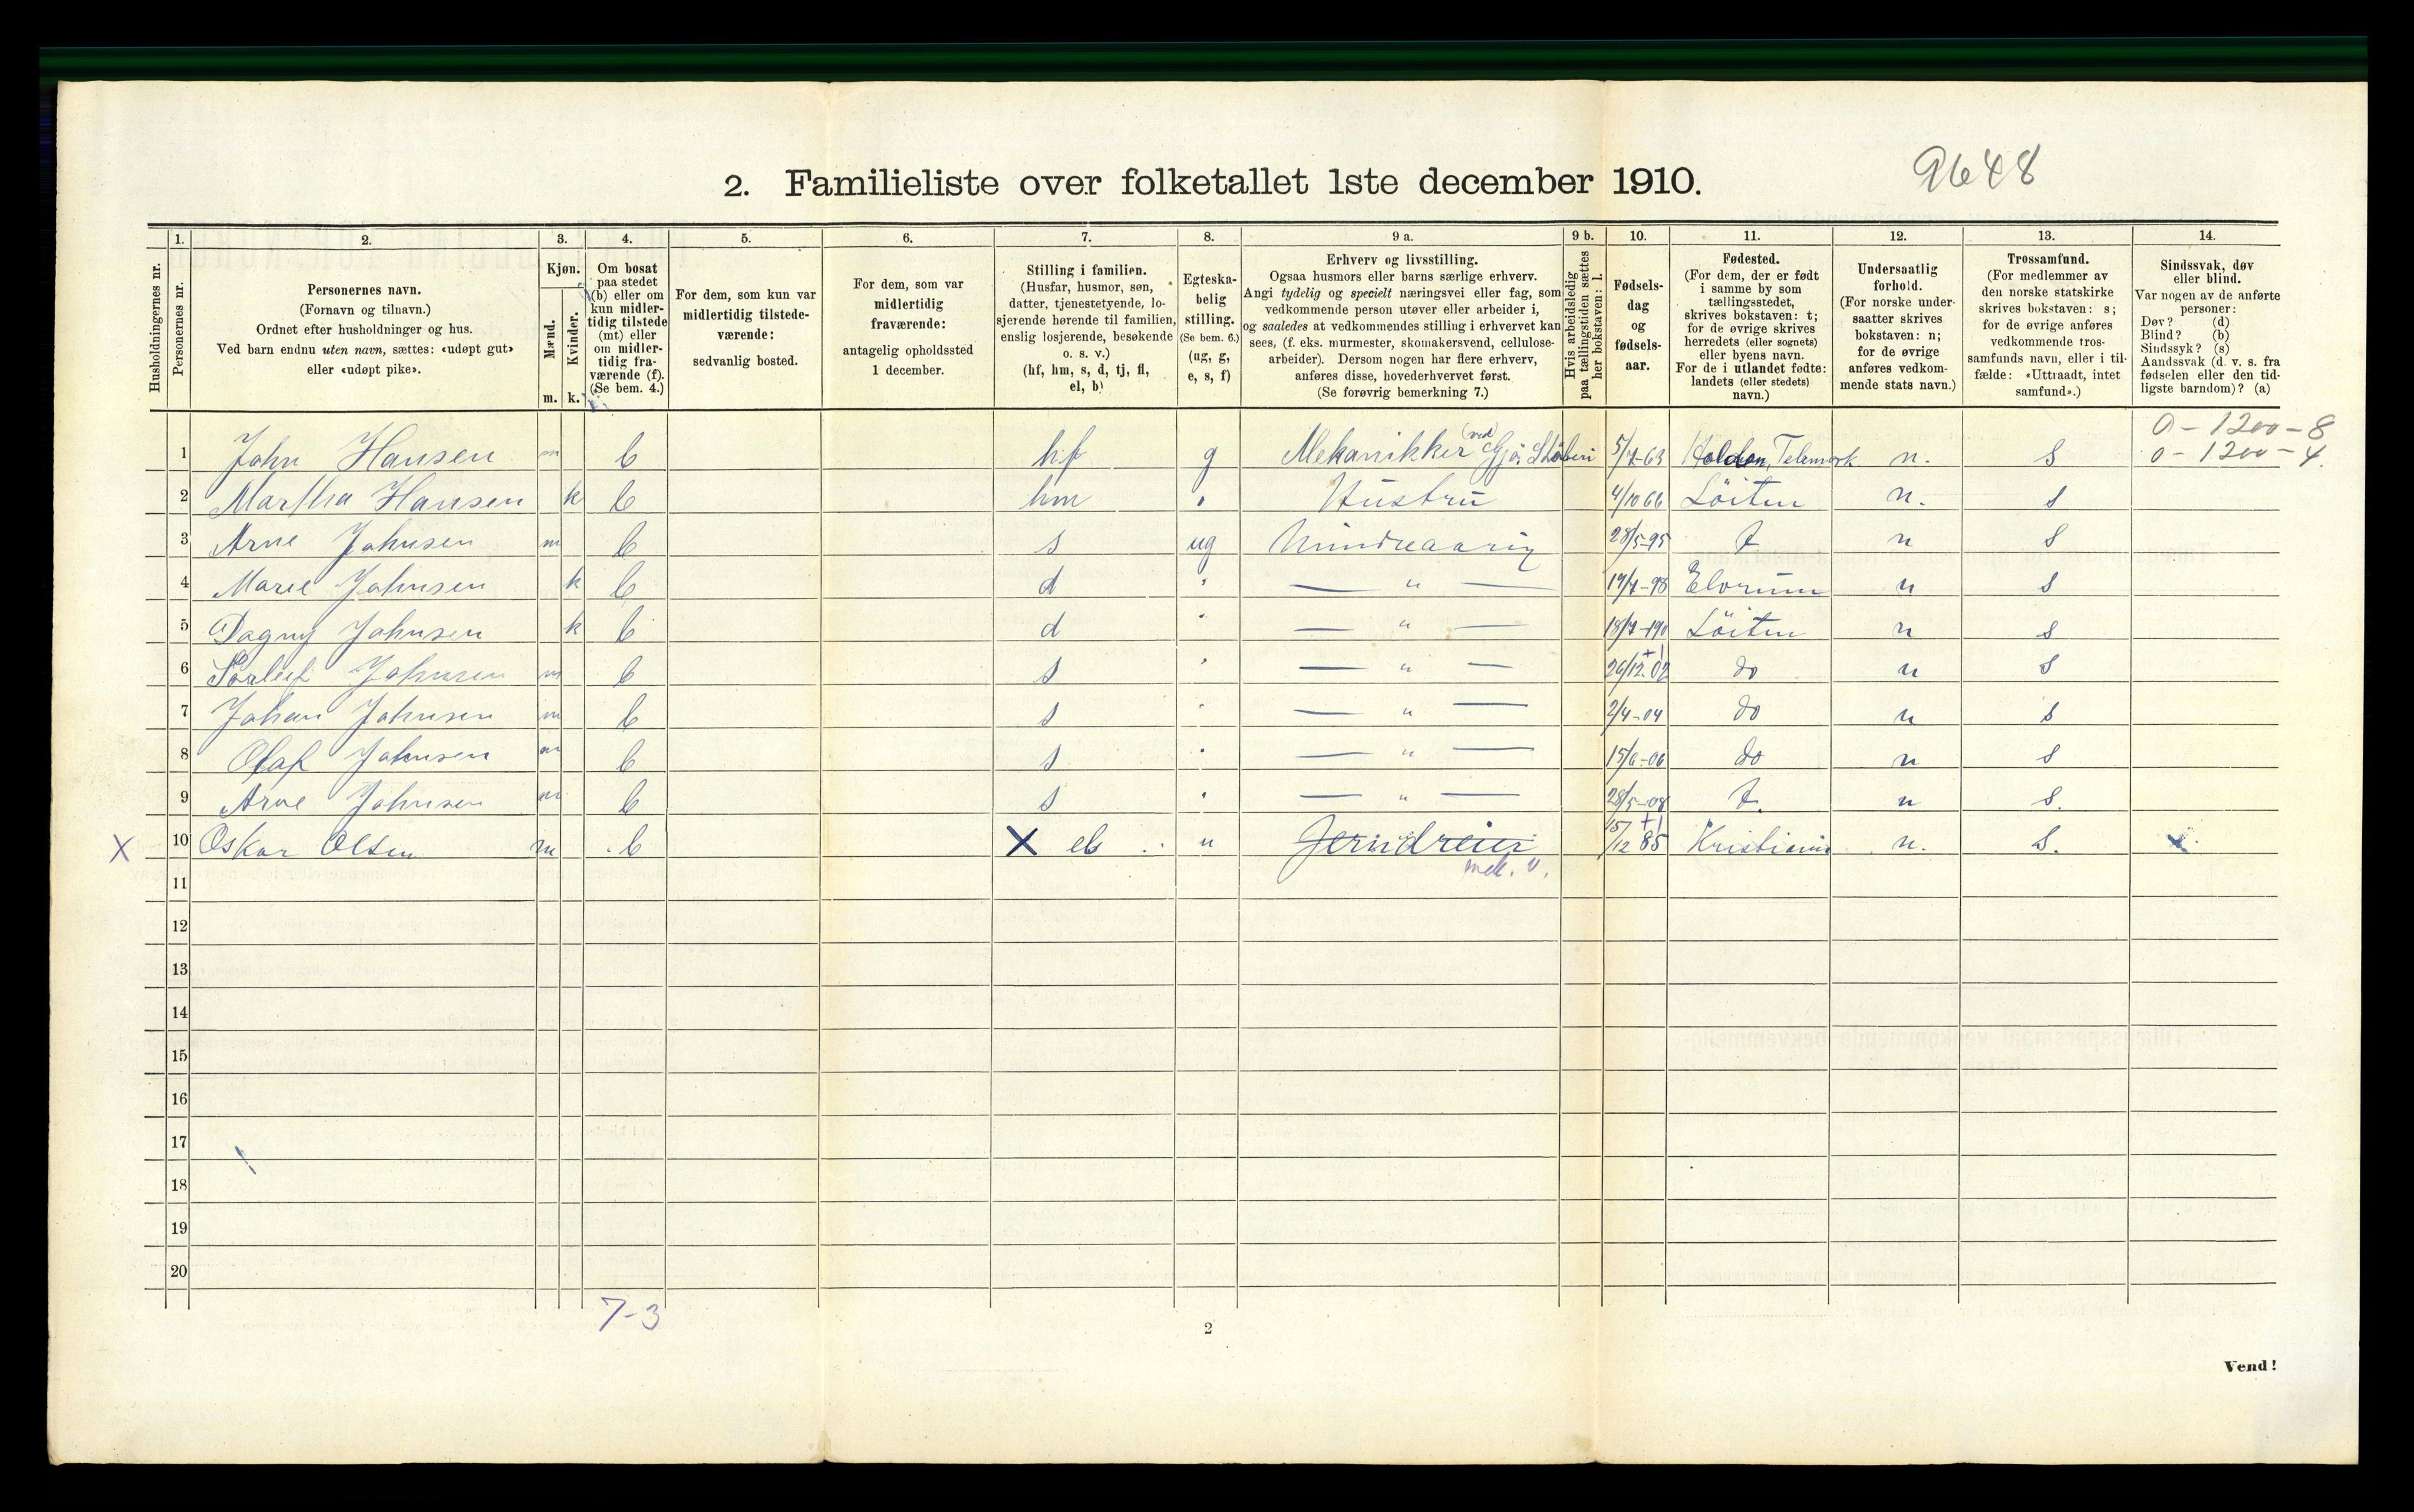 2. Familieliste over folketallet 1ste december 1910.
9648
Husholdningernes nr.
1.
Personernes nr.
2.
Personernes navn.
(Fornavn og tilnavn.)
Ordnet efter husholdninger og hus.
Ved barn endnu uten navn, sættes: «udøpt gut»
eller «udøpt pike».
3.
Kjøn.
Mænd.
Kvinder.
m. k.
4.
Om bosat
paa stedet
(b) eller om
kun midler-
tidig tilstede
(mt) eller
om midler-
tidig fra-
værende (f).
(Se bem. 4.)
5.
For dem, som kun var
midlertidig tilstede-
værende:
sedvanlig bosted.
6.
For dem, som var
midlertidig
fraværende:
antagelig opholdssted
1 december.
7.
Stilling i familien.
(Husfar, husmor, søn,
datter, tjenestetyende, lo-
sjerende hørende til familien,
enslig losjerende, besøkende
o. s. v.)
(hf, hm, s, d, tj, fl,
el, b)
8.
Egteska-
belig
stilling.
(Se bem. 6.)
(ug, g,
e, s, f)
9 a.
Erhverv og livsstilling.
Ogsaa husmors eller barns særlige erhverv.
Angi tydelig og specielt næringsvei eller fag, som
vedkommende person utøver eller arbeider i,
og saaledes at vedkommendes stilling i erhvervet kan
sees, (f. eks. murmester, skomakersvend, cellulose-
arbeider). Dersom nogen har flere erhverv,
anføres disse, hovederhvervet først.
(Se forøvrig bemerkning 7.)
9 b.
Hvis arbeidsledig
paa tællingstiden sættes
her bokstaven: l.
10.
Fødsels-
dag
og
fødsels-
aar.
11.
Fødested.
(For dem, der er født
i samme by som
tællingsstedet,
skrives bokstaven: t;
for de øvrige skrives
herredets (eller sognets)
eller byens navn.
For de i utlandet fødte:
landets (eller stedets)
navn.)
12.
Undersaatlig
forhold.
(For norske under-
saatter skrives
bokstaven: n;
for de øvrige
anføres vedkom-
mende stats navn.)
13.
Trossamfund.
(For medlemmer av
den norske statskirke
skrives bokstaven: s;
for de øvrige anføres
vedkommende tros-
samfunds navn, eller i til-
fælde: «Uttraadt, intet
samfund».)
14.
Sindssvak, døv
eller blind.
Var nogen av de anførte
personer:
Døv? (d)
Blind? (b)
Sindssyk? (s)
Aandssvak (d. v. s. fra
fødselen eller den tid-
ligste barndom)? (a)
0 - 1200 - 8
0 - 1200 - 4.
1 John Hansen m b hf g Mekanikker (ved) 5/7-63 Holden, Telemark n. s
2 Martha Hansen k b hm " Hustru 4/10 66 Löiten n. s
3 Arne Johnsen m b s ug Mindreaarig 28/5-95 t n s
4 Marie Johnsen k b d " — " — 19/7-98 Elvrum n s
5 Dagny Johnsen k b d " — " — 18/7-190 Löiten n s
6 Thorleif Johnsen m b s " — " — 26/12.02 do n s
7 Johan Johnsen m b s " — " — 2/4-04 do n s
8 Olaf Johnsen m b s " — " — 15/6-06 do n s
9 Arne Johnsen m b s " — " — 28/5-08 t. n s.
X 10 Oskar Olsen m b X el " Jerndreier 15/12 85 Kristiania n. s. x
mek. v.
11
12
13
14
15
16
17
18
19
20
7-3
2
Vend!